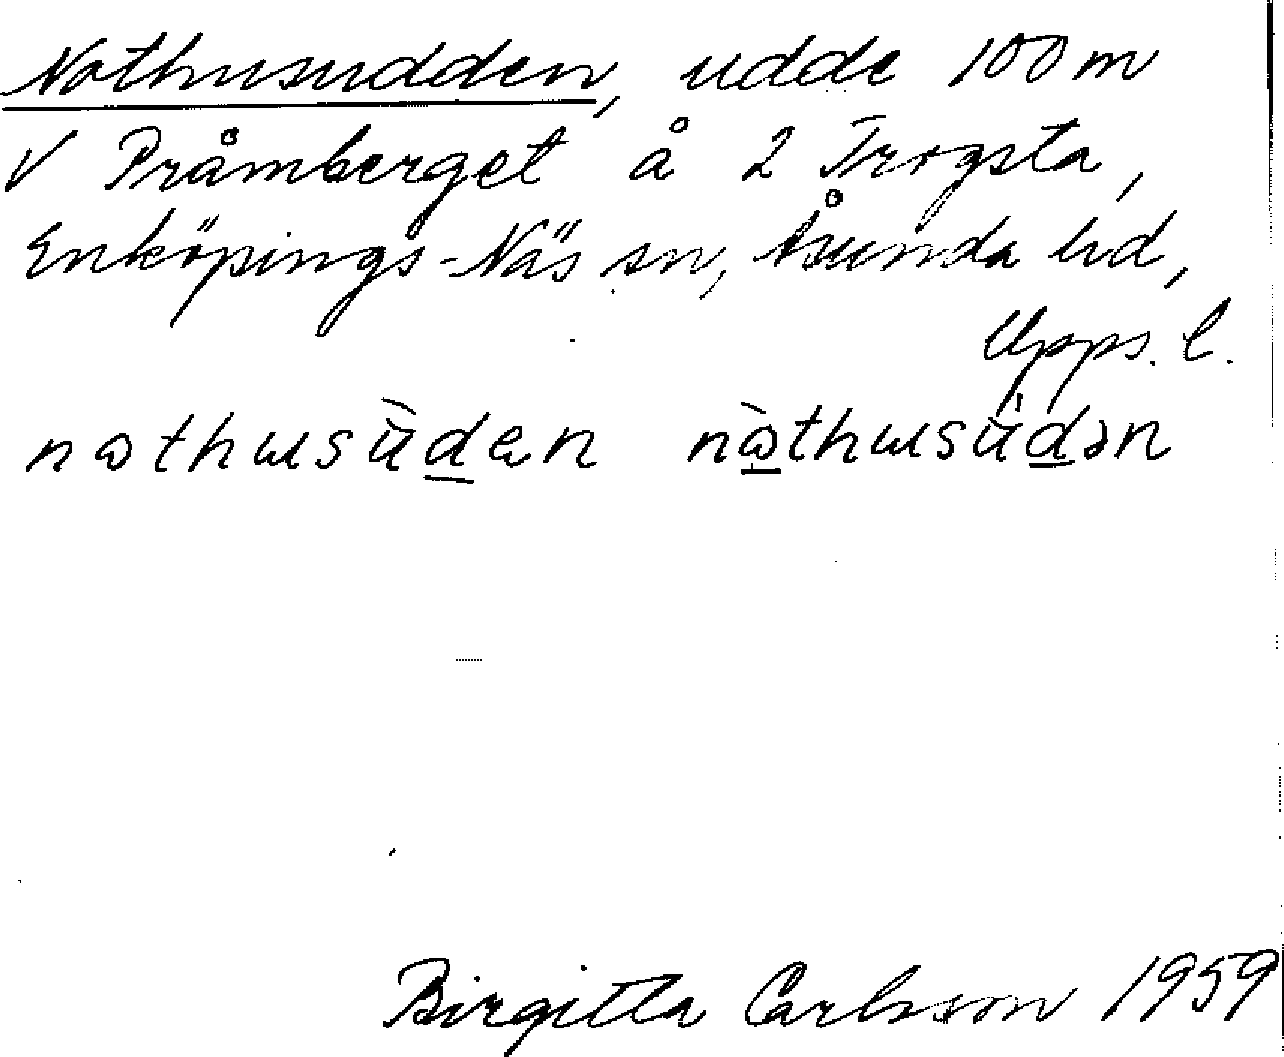 Nothusudden, udde 100 m
V Pråmberget å 2 Trögsta,
Enköpings-Näs sn, Åsunda hd,
Upps. l.
nɷthɯsùd̲en nɷ̲̀thɯsùd̲ən
Birgitta Carlsson 1959